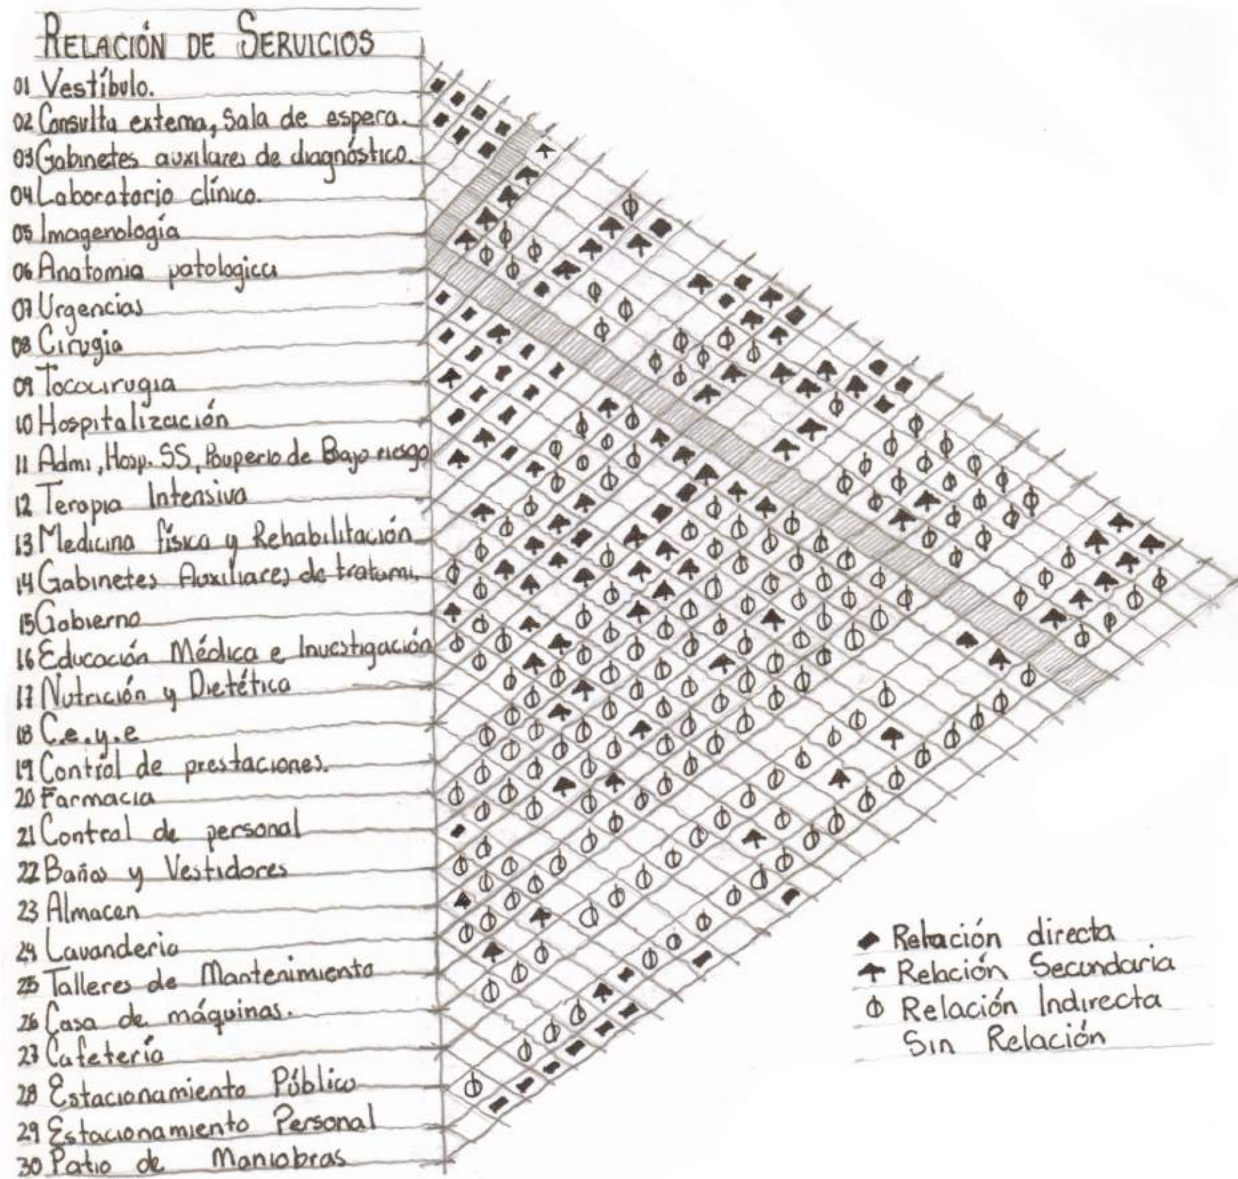 RELACIÓN DE SERVICIOS
01 Vestíbulo.
02 Consulta externa, Sala de espera.
03 Gabinetes auxilares de diagnóstico.
04 Laboratorio clínico.
05 Imagenología
06 Anatomia patologica
07 Urgencias
08 Cirugia
09 Tococirugia
10 Hospitalización
11 Admi, Hosp. SS, Pouperio de Bajo riesgo
12 Terapia Intensiva
13 Medicina física y Rehabilitación
14 Gabinetes Auxiliares de tratami.
15 Gobierno
16 Educación Médica e Investigación
17 Nutrición y Dietética
18 C.e.y.e
19 Control de prestaciones.
20 Farmacia
21 Control de personal
22 Baños y Vestidores
23 Almacen
24 Lavanderia
25 Talleres de Mantenimiento
26 Casa de máquinas.
27 Cafetería
28 Estacionamiento Público
29 Estacionamiento Personal
30 Patio de Maniobras
Relación directa
Relación Secundaria
Relación Indirecta
Sin Relación